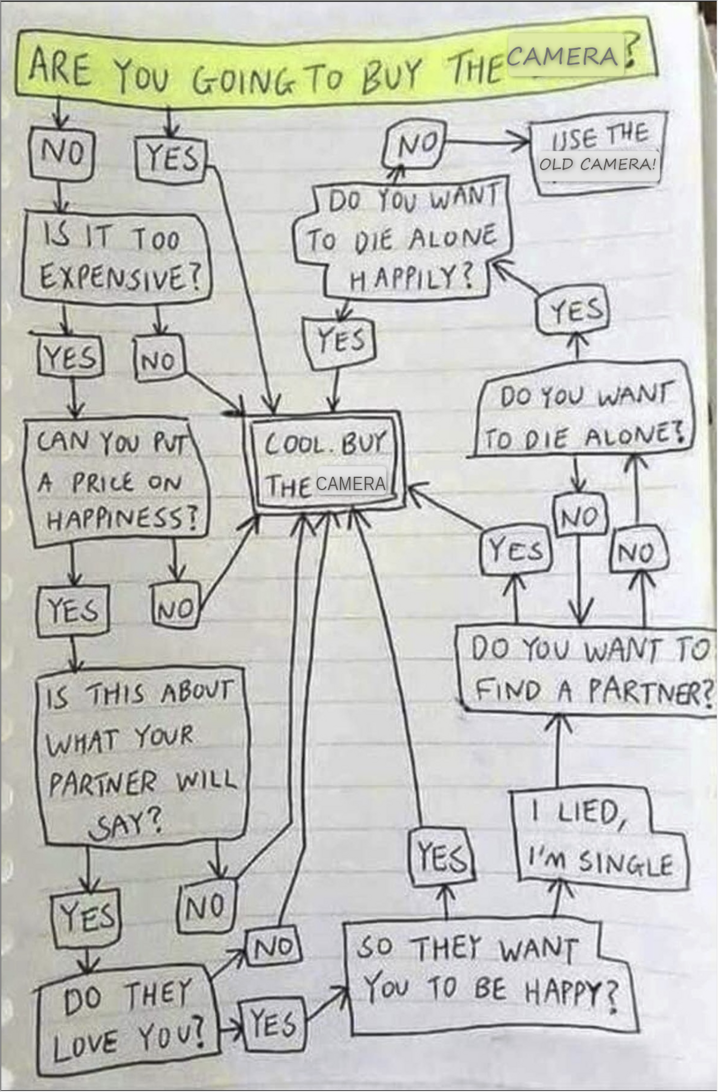 ARE YOU GOING TO BUY THE CAMERA?
NO
YES
NO
USE THE
OLD CAMERA!
DO YOU WANT
TO DIE ALONE
HAPPILY?
IS IT TOO
EXPENSIVE?
YES
YES
YES
NO
DO YOU WANT
TO DIE ALONE?
CAN YOU PUT
A PRICE ON
HAPPINESS?
COOL. BUY
THE CAMERA
NO
YES
NO
YES
NO
DO YOU WANT TO
FIND A PARTNER?
IS THIS ABOUT
WHAT YOUR
PARTNER WILL
SAY?
I LIED,
I'M SINGLE
YES
YES
NO
NO
SO THEY WANT
YOU TO BE HAPPY?
DO THEY
LOVE YOU?
YES